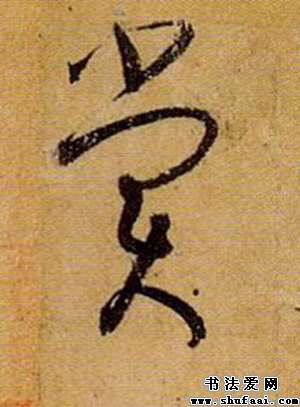 賞
书法爱网
www.shufaai.com